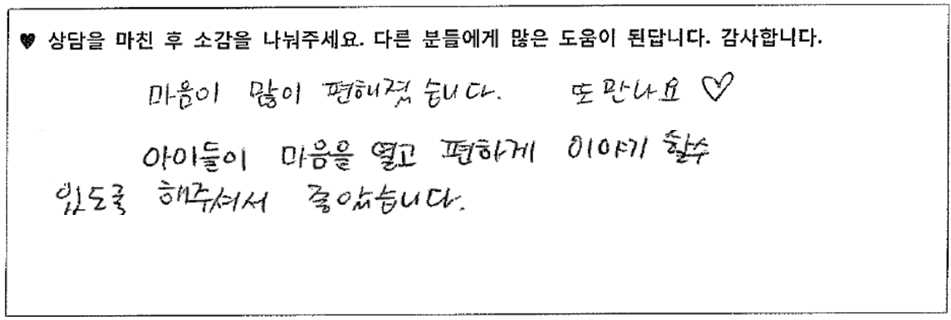 ♥ 상담을 마친 후 소감을 나눠주세요. 다른 분들에게 많은 도움이 된답니다. 감사합니다.
마음이 많이 편해졌습니다. 또 만나요 ♡
아이들이 마음을 열고 편하게 이야기 할수
있도록 해주셔서 좋았습니다.